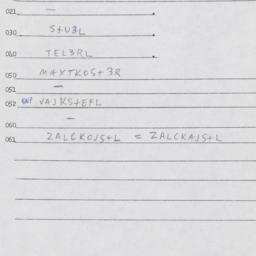 021 —
030 S+U3L
040 TEL3RL
050 MAYTKOS+3R
051 —
052 VAJKS+EFL
060 —
061 ZALCKOJS+L = ZALCKAJS+L